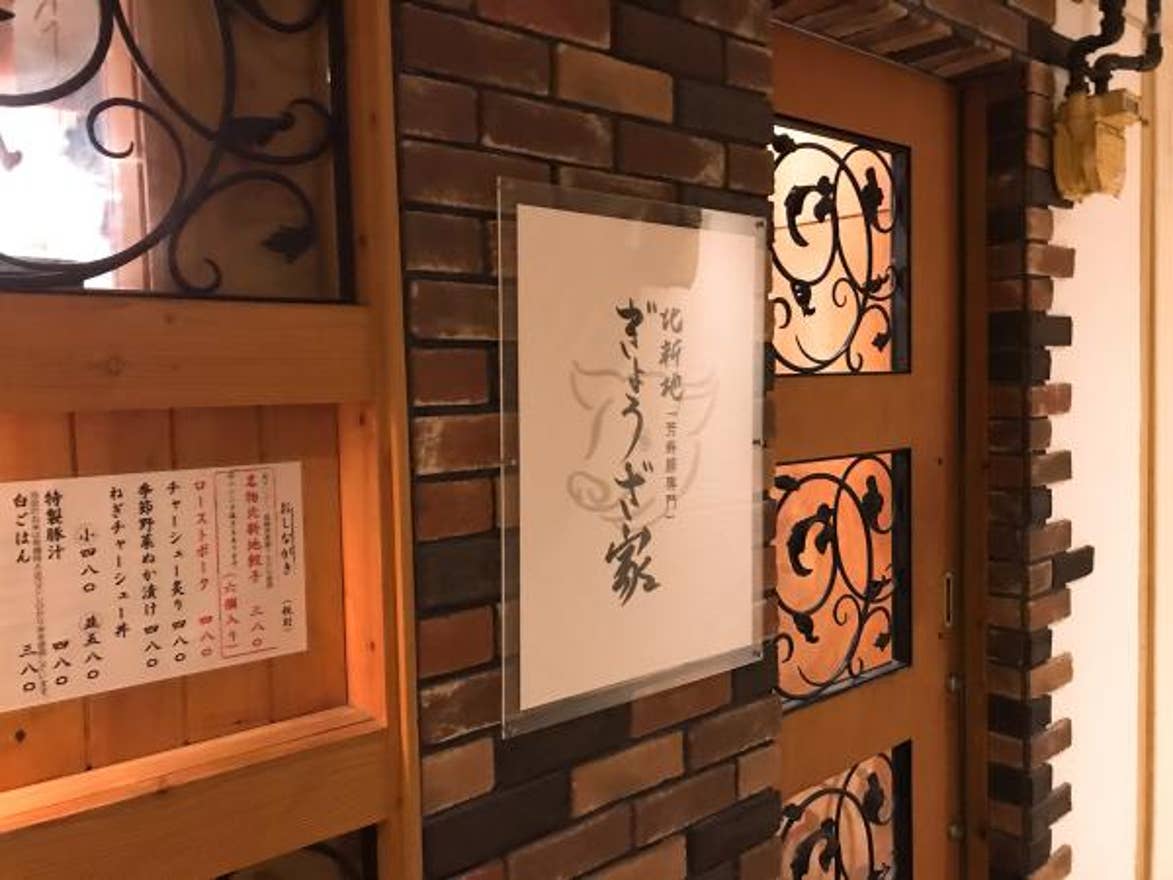 北新地
ぎょうざ家
おしながき (税別)
名物北新地餃子 (六個入り) 三八〇
ローストポーク 四八〇
チャーシュー炙り 四八〇
季節野菜ぬか漬け 四八〇
ねぎチャーシュー丼
小 四八〇 並 五八〇
特製豚汁 四八〇
白ごはん 三八〇